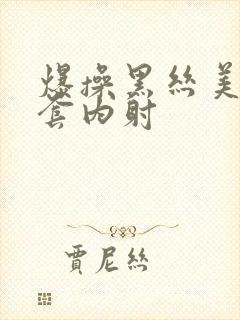 爆操黑丝美
套内射
賈尼絲